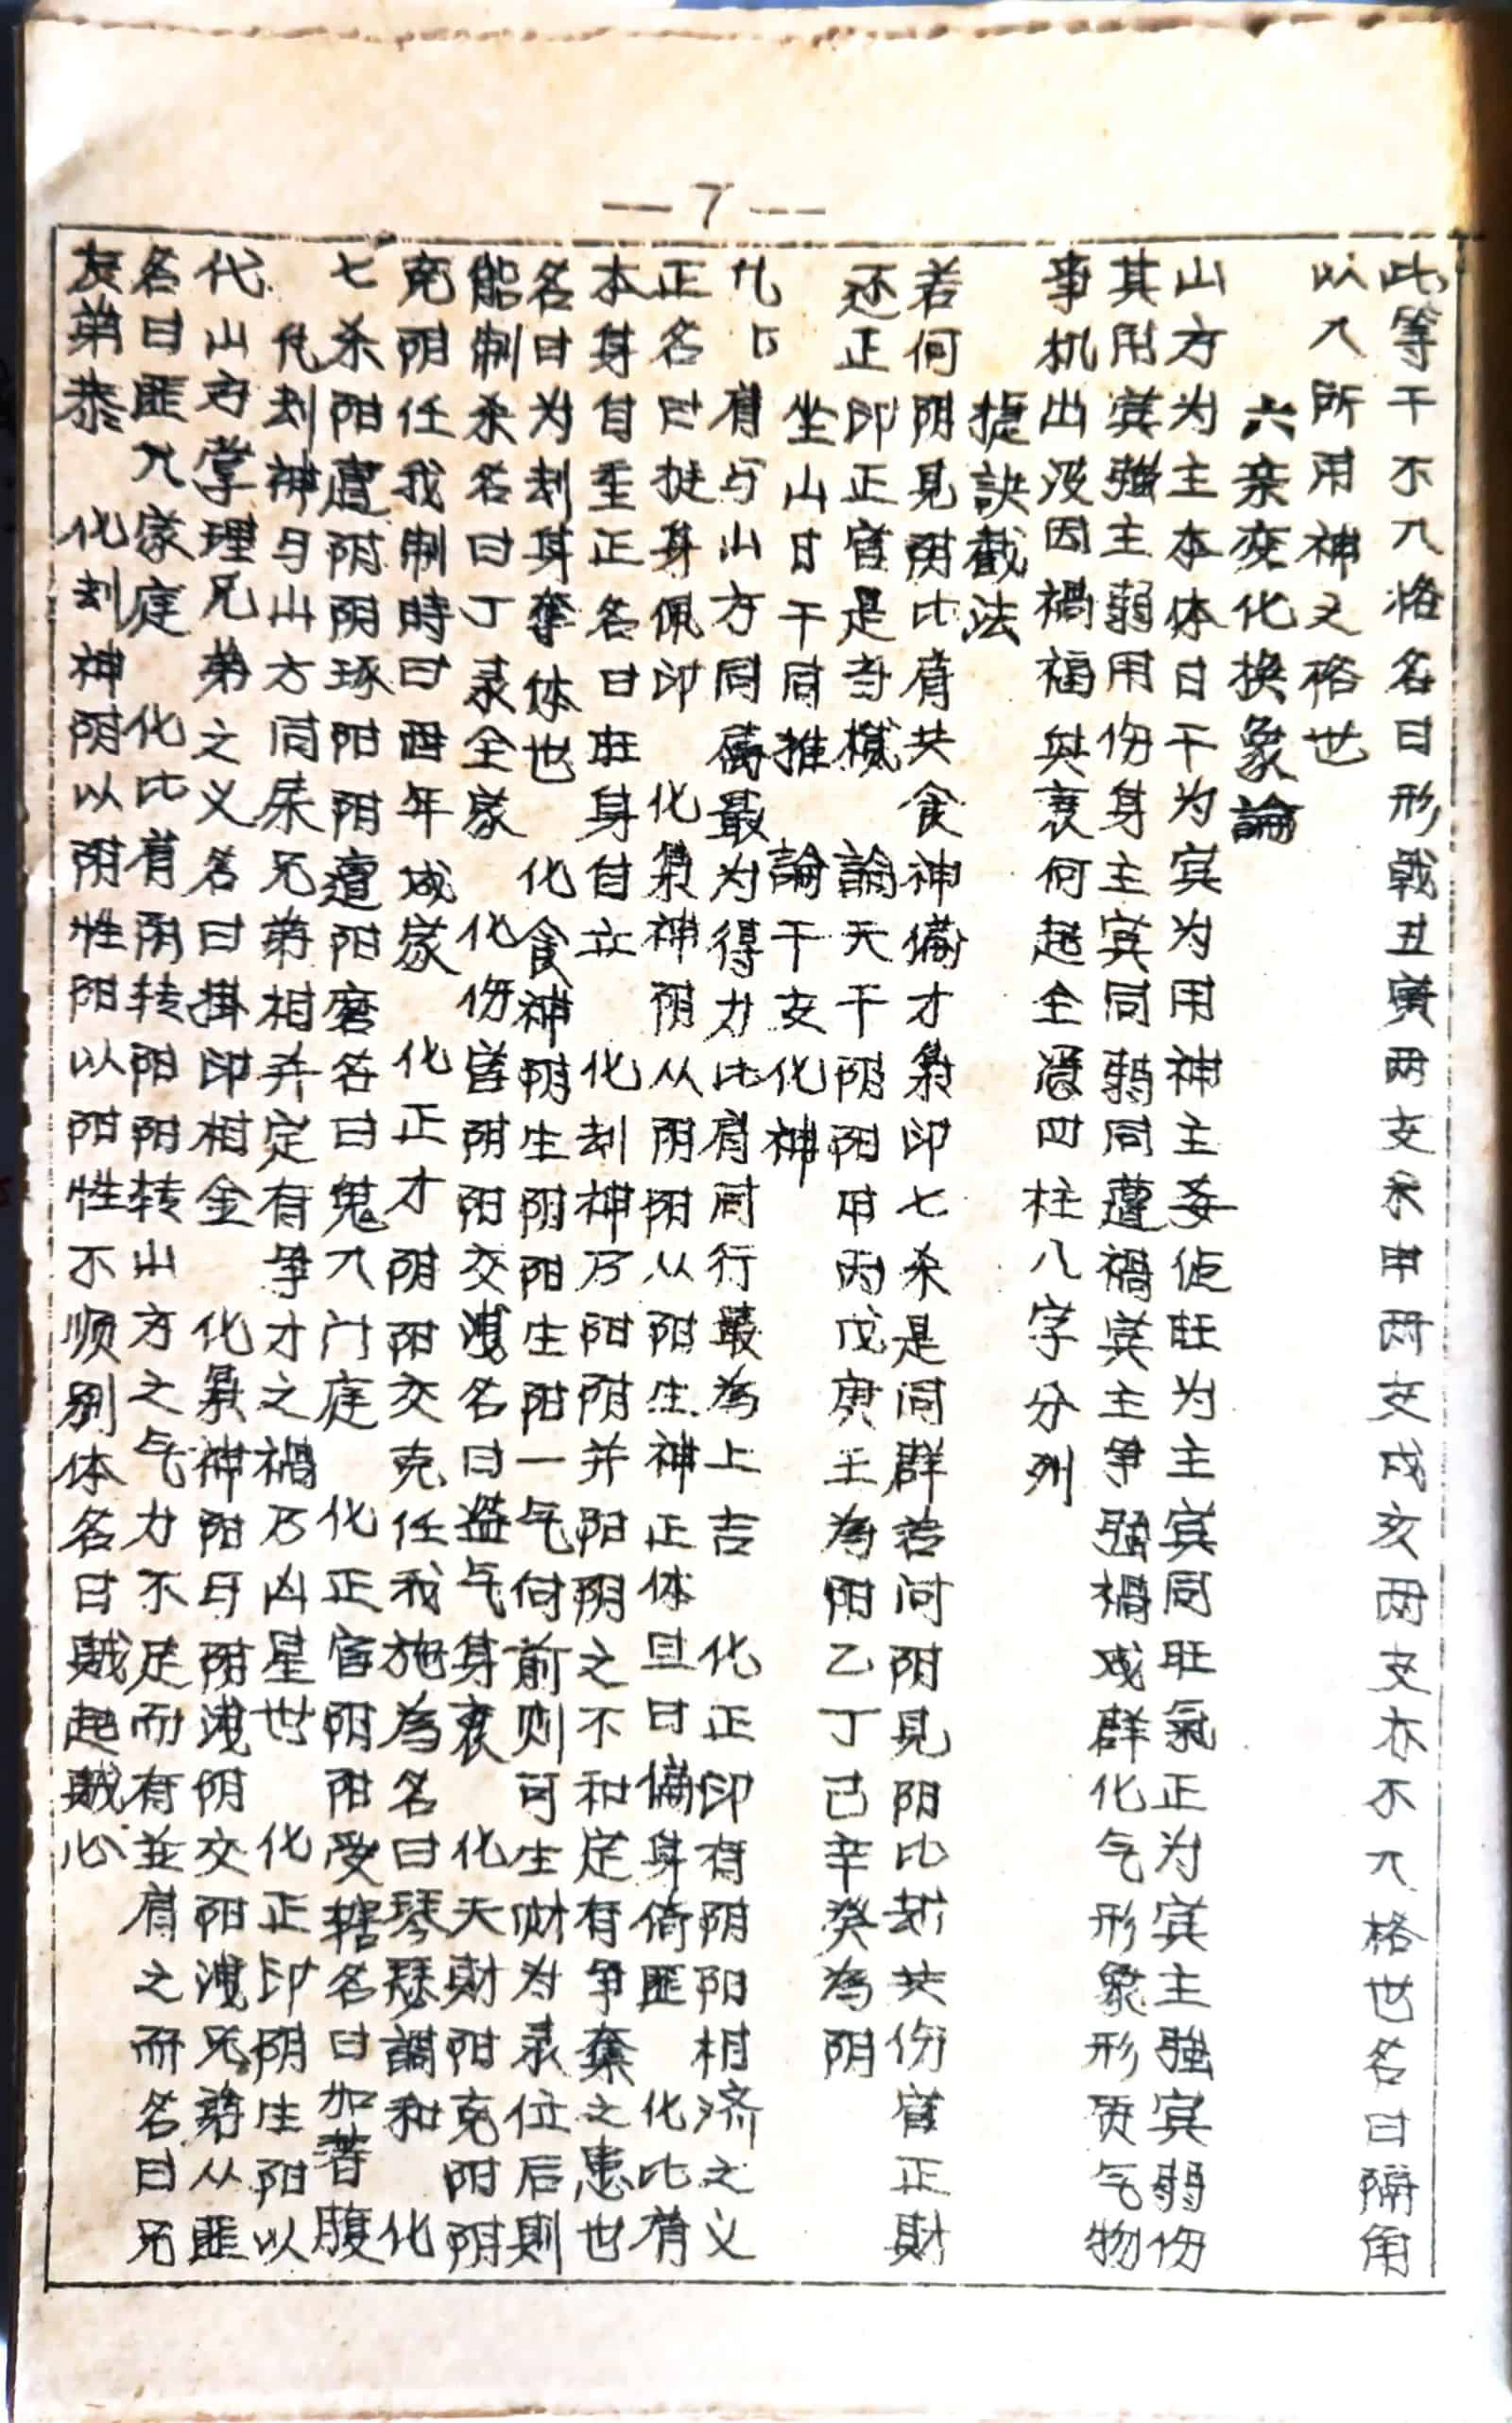 —7—
此等干不入格名曰形戰丑寅兩支未申兩支戌亥兩支亦不入格世名曰隔角
以入所用神又格世
六亲变化换象論
山方为主本体日干为宾为用神主妥佔旺为主宾同旺氣正为宾主强宾弱伤
其用宾强主弱用伤身主宾同弱同遭禍宾主争强禍成群化气形象形质气物
事机出没因禍福與衰何起全凴四柱八字分州
捷訣截法
若何阴見阴比肩共食神偏才梟印七杀是同群若问阴見阳比刼共伤官正財
还正印正官是奇機 論天干阴阳甲丙戊庚壬為阳乙丁己辛癸為阴
坐山日干同推 論干支化神
化比肩与山方同属最为得力比肩同行最為上吉 化正印有阴阳相济之义
正名曰挺身佩印 化梟神阴从阴阳从阳生神正体旦曰偏身倚匪 化比肩
本身自重正名曰旺身自立 化刦神乃阳阴并阳阴之不和定有争奪之患也
名曰为刦身奪体也 化食神阴生阴阳生阳一气何前则可生财为录位后則
能制杀名曰丁录全家 化伤官阴阳交洩名曰盗气身衰 化天財阳克阳阴
克阴任我制時曰酉年成家 化正才阴阳交克任我施為名曰琴瑟調和 化
七杀阳遭阴阴琢阳阳遭阳磨名曰鬼入门庭 化正官阴阳受轄名曰加著腹
化刦神与山方同属兄弟相并定有争才之禍乃凶星世 化正印阴生阳以
代山方掌理兄弟之义名曰掛印相金 化梟神阳丹阴洩阴交阳洩兄弟从匪
名曰匪入家庭 化比肩阴转阳阳转山方之气力不足而有並肩之而名曰兄
友弟恭 化刦神阴以阴性阳以阳性不顺别体名曰贼起贼心